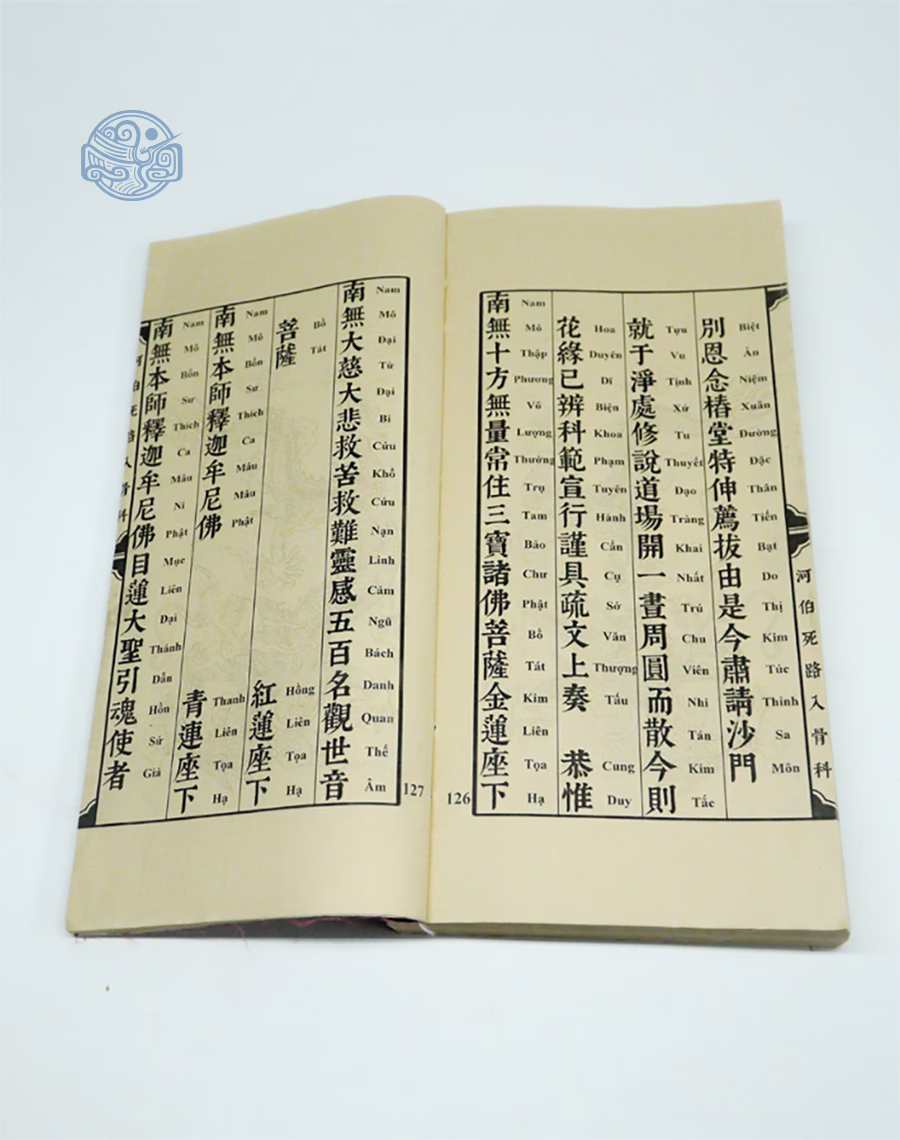 河伯死路入骨科
別恩念椿堂特伸薦拔由是今肅請沙門
Biệt Ân Niệm Xuân Đường Đặc Thân Tiến Bạt Do Thị Kim Túc Thỉnh Sa Môn
就于淨處修說道場開一晝周圓而散今則
Tựu Vu Tịnh Xứ Tu Thuyết Đạo Tràng Khai Nhất Trú Chu Viên Nhi Tán Kim Tắc
花緣已辨科範宣行謹具疏文上奏 恭惟
Hoa Duyên Dĩ Biện Khoa Phạm Tuyên Hành Cẩn Cụ Sớ Văn Thượng Tấu Cung Duy
南無十方無量常住三寶諸佛菩薩金蓮座下
Nam Mô Thập Phương Vô Lượng Thường Trụ Tam Bảo Chư Phật Bồ Tát Kim Liên Tọa Hạ
126
127
南無大慈大悲救苦救難靈感五百名觀世音
Nam Mô Đại Từ Đại Bi Cứu Khổ Cứu Nạn Linh Cảm Ngũ Bách Danh Quan Thế Âm
菩薩 紅蓮座下
Bồ Tát Hồng Liên Tọa Hạ
南無本師釋迦牟尼佛 青連座下
Nam Mô Bổn Sư Thích Ca Mâu Mâu Phật Thanh Liên Tọa Hạ
南無本師釋迦牟尼佛目蓮大聖引魂使者
Nam Mô Bổn Sư Thích Ca Mâu Ni Phật Mục Liên Đại Thánh Dẫn Hồn Sứ Giả
河伯死路入骨科